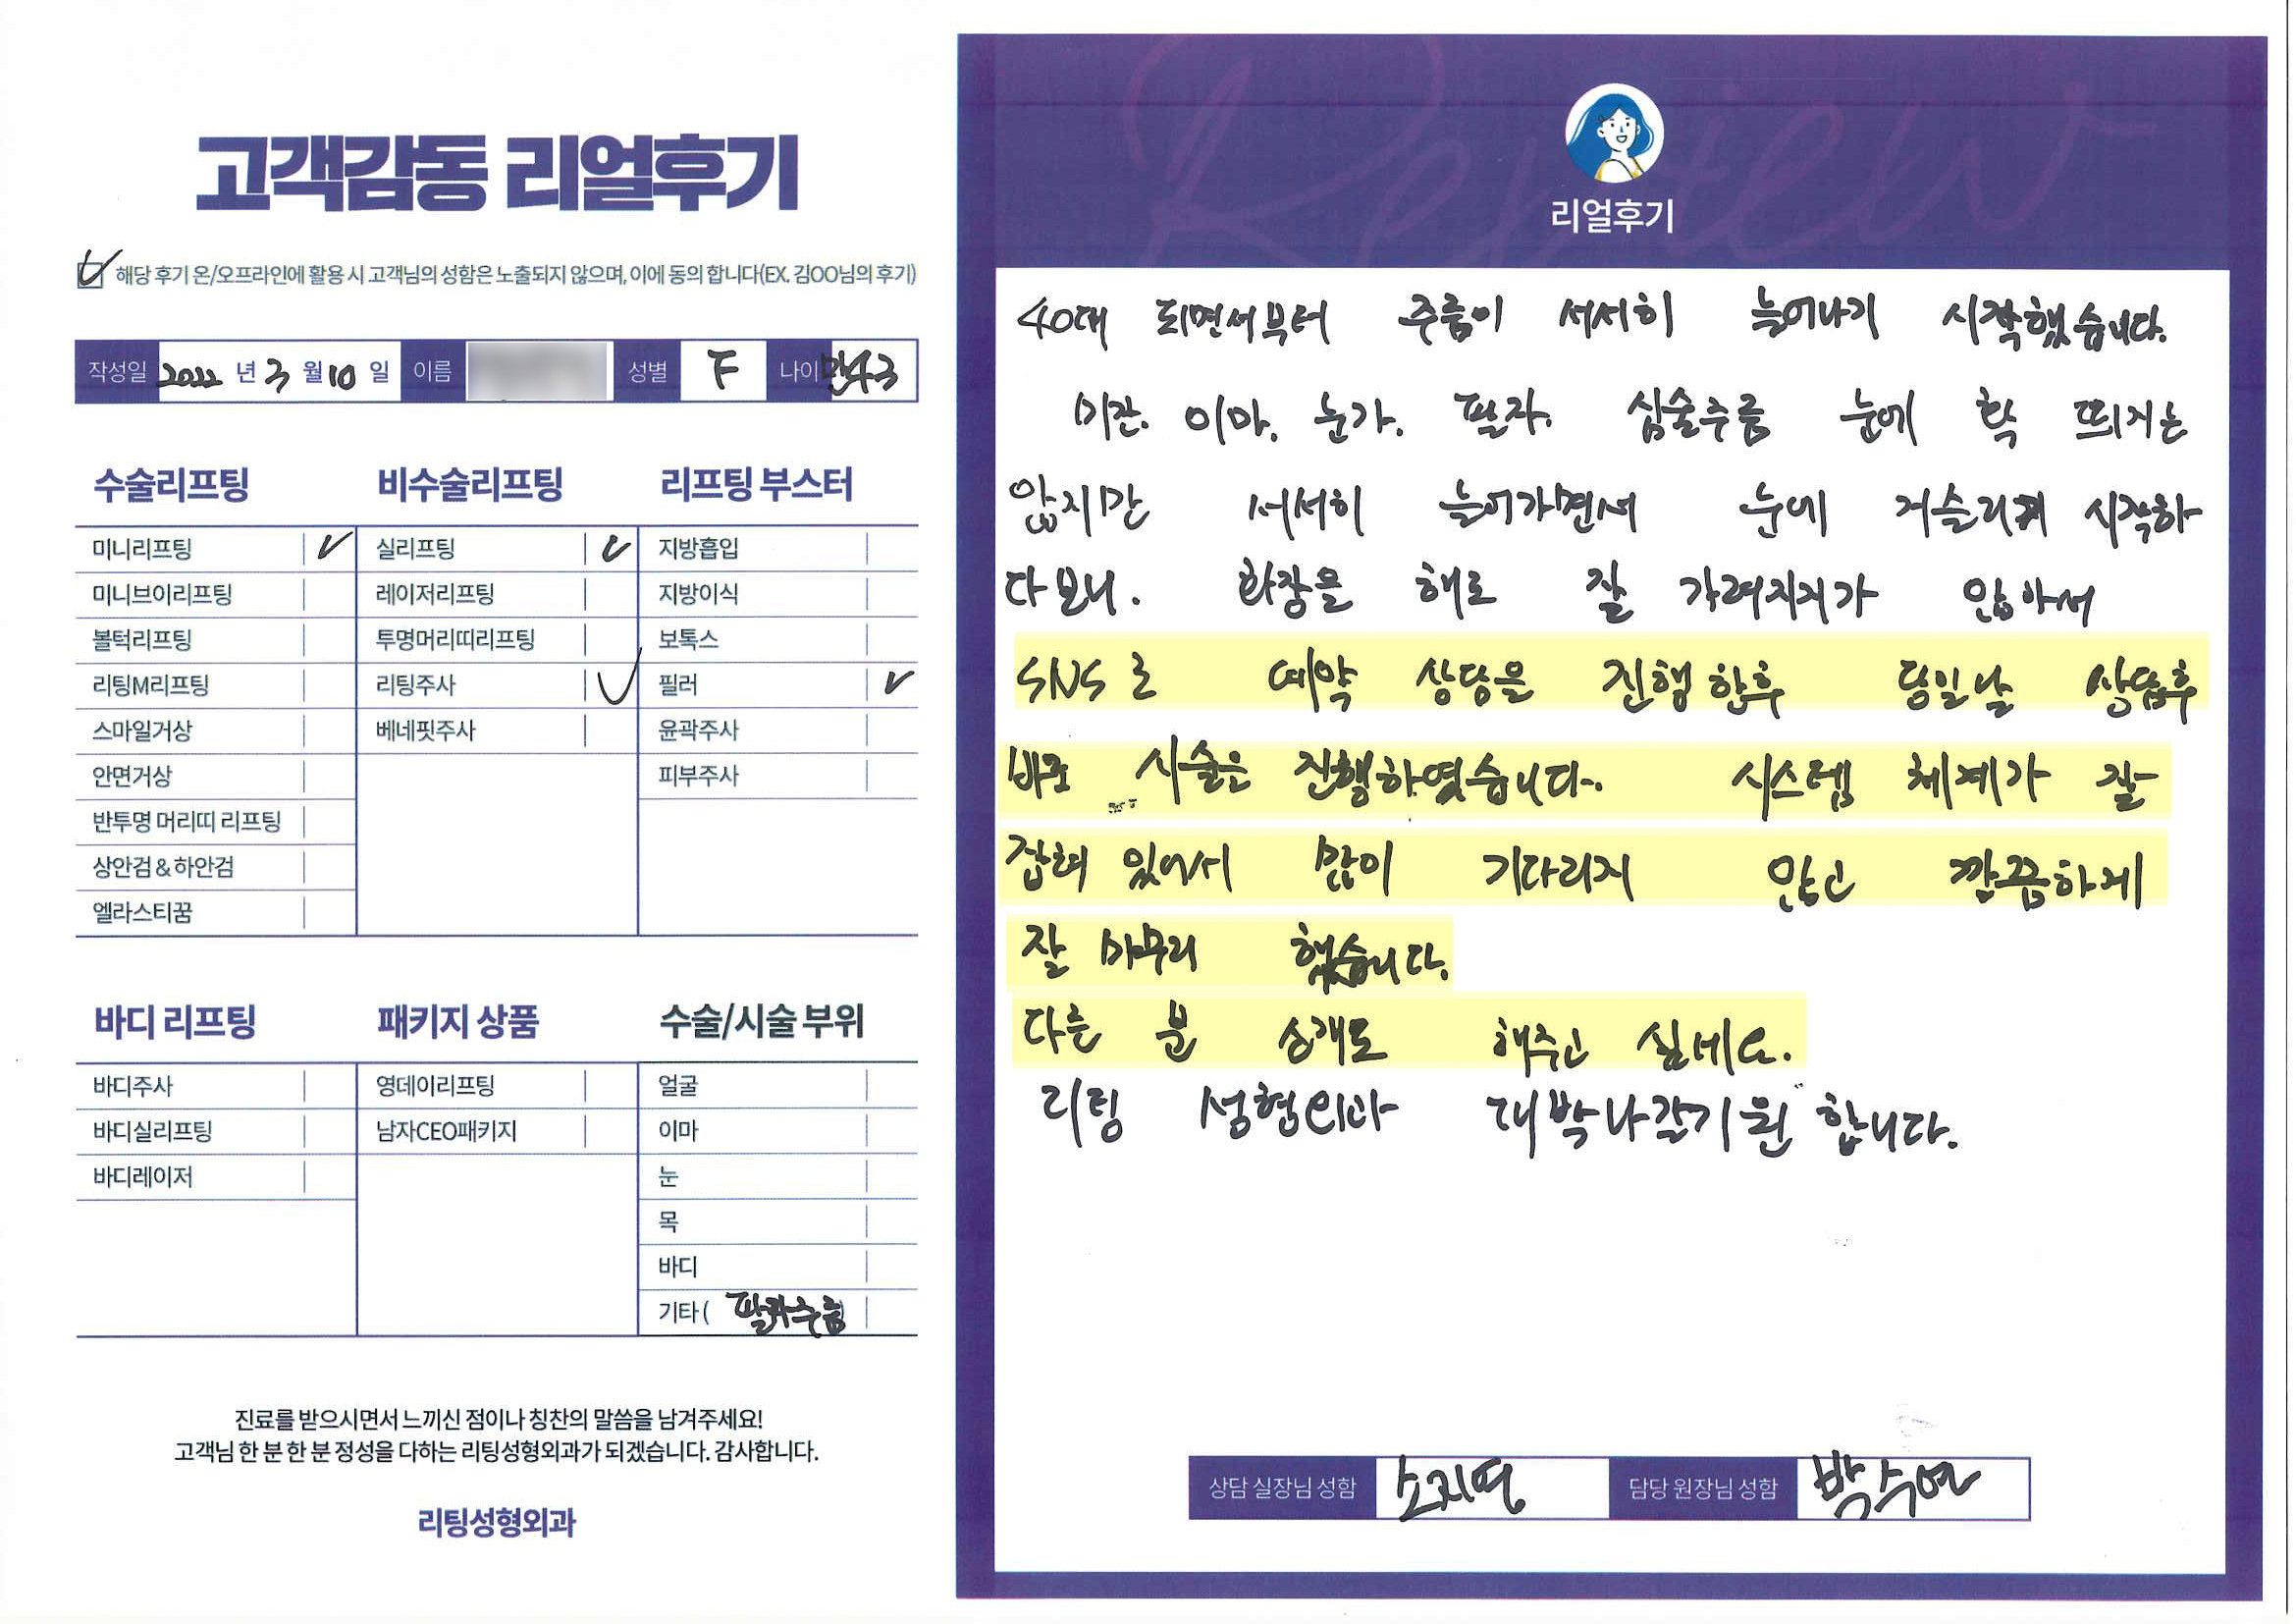 고객감동 리얼후기
해당 후기 온/오프라인에 활용 시 고객님의 성함은 노출되지 않으며, 이에 동의 합니다(EX. 김OO님의 후기)
작성일 2022 년 3 월 10 일 이름 성별 F 나이 만43
수술리프팅
미니리프팅
미니브이리프팅
볼턱리프팅
리팅M리프팅
스마일거상
안면거상
반투명 머리띠 리프팅
상안검 & 하안검
엘라스티꿈
비수술리프팅
실리프팅
레이저리프팅
투명머리띠리프팅
리팅주사
베네핏주사
리프팅 부스터
지방흡입
지방이식
보톡스
필러
윤곽주사
피부주사
바디 리프팅
바디주사
바디실리프팅
바디레이저
패키지 상품
영데이리프팅
남자CEO패키지
수술/시술 부위
얼굴
이마
눈
목
바디
기타 ( 팔자주름 )
진료를 받으시면서 느끼신 점이나 칭찬의 말씀을 남겨주세요!
고객님 한 분 한 분 정성을 다하는 리팅성형외과가 되겠습니다. 감사합니다.
리팅성형외과
Review
리얼후기
40대 되면서부터 주름이 서서히 늘어나기 시작했습니다.
미간. 이마. 눈가. 팔자. 심술주름 눈에 확 띄지는
않지만 서서히 늘어가면서 눈에 거슬리게 시작하
다보니. 화장을 해도 잘 가려지지가 않아서
SNS로 예약 상담을 진행한후 당일날 상담후
바로 시술은 진행하였습니다. 시스템 체계가 잘
잡혀 있어서 많이 기다리지 않고 깔끔하게
잘 마무리 했습니다.
다른 분 소개도 해주고 싶네요.
리팅 성형외과 대박나길기원 합니다.
상담 실장님 성함 소지영 담당 원장님 성함